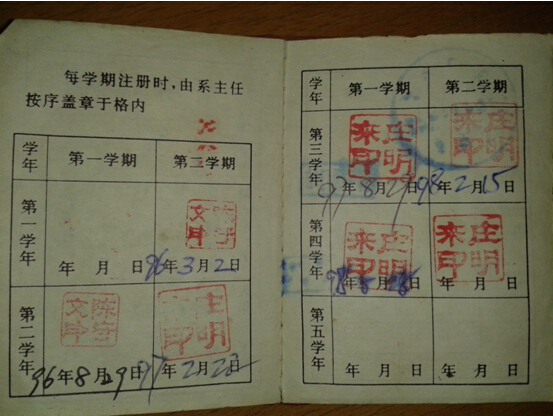 每学期注册时,由系主任
按序盖章于格内
学年 第一学期 第二学期
第一学年
年 月 日 96年3月2日
第二学年
96年8月29日 97年2月22日
学年 第一学期 第二学期
第三学年 庄明来印 庄明来印
97年8月29日 98年2月15日
第四学年 庄明来印 庄明来印
年 月 日 年 月 日
第五学年
年 月 日 年 月 日